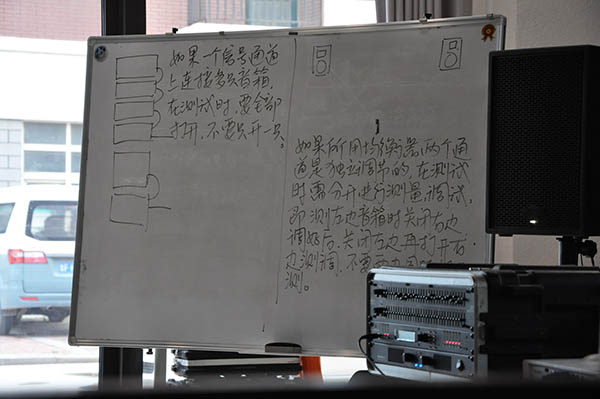 如果一个信号通道
上连接多只音箱,
在测试时,要全部
打开,不要只开一只。
如果所用均衡器两个通
道是独立调节的,在测试
时需分开进行测量调试,
即测左边音箱时关闭右边
调好后,关闭左边再打开右
边测调,不要两边同
测。